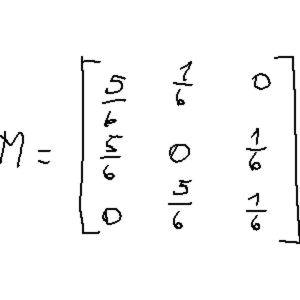 M = [ 5/6 1/6 0
5/6 0 1/6
0 5/6 1/6 ]